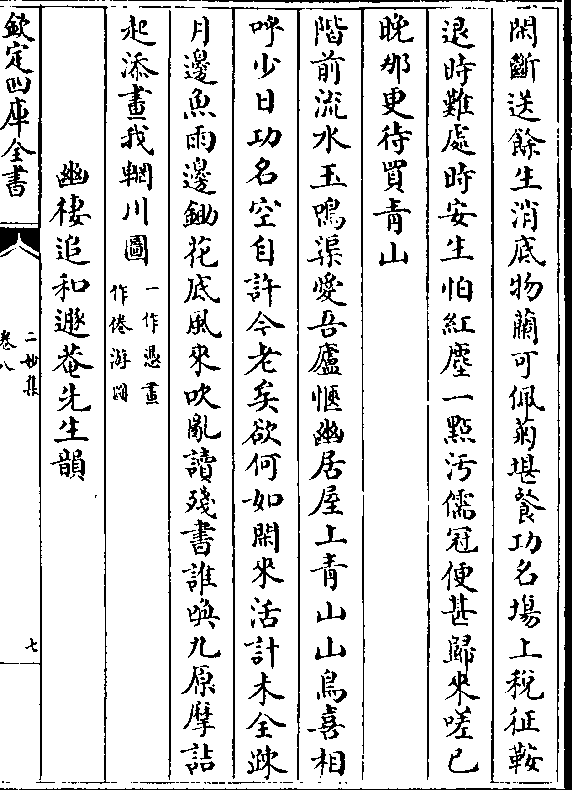 閑斷送餘生消底物蘭可佩菊堪餐功名塲上稅征鞍
退時難處時安生怕紅塵一點汚儒冠便甚歸來嗟已
晩那更待買青山
階前流水玉鳴渠愛吾廬愜幽居屋上青山山鳥喜相
呼少日功名空自許今老矣欲何如閑來活計未全疎
月邊魚雨邊鋤花底風來吹亂讀殘書誰喚九原摩詰
起添畫我輞川圖
一作慿畫
作倦游圖
幽棲追和遯菴先生韻
欽定四庫全書
二妙集
卷八
七